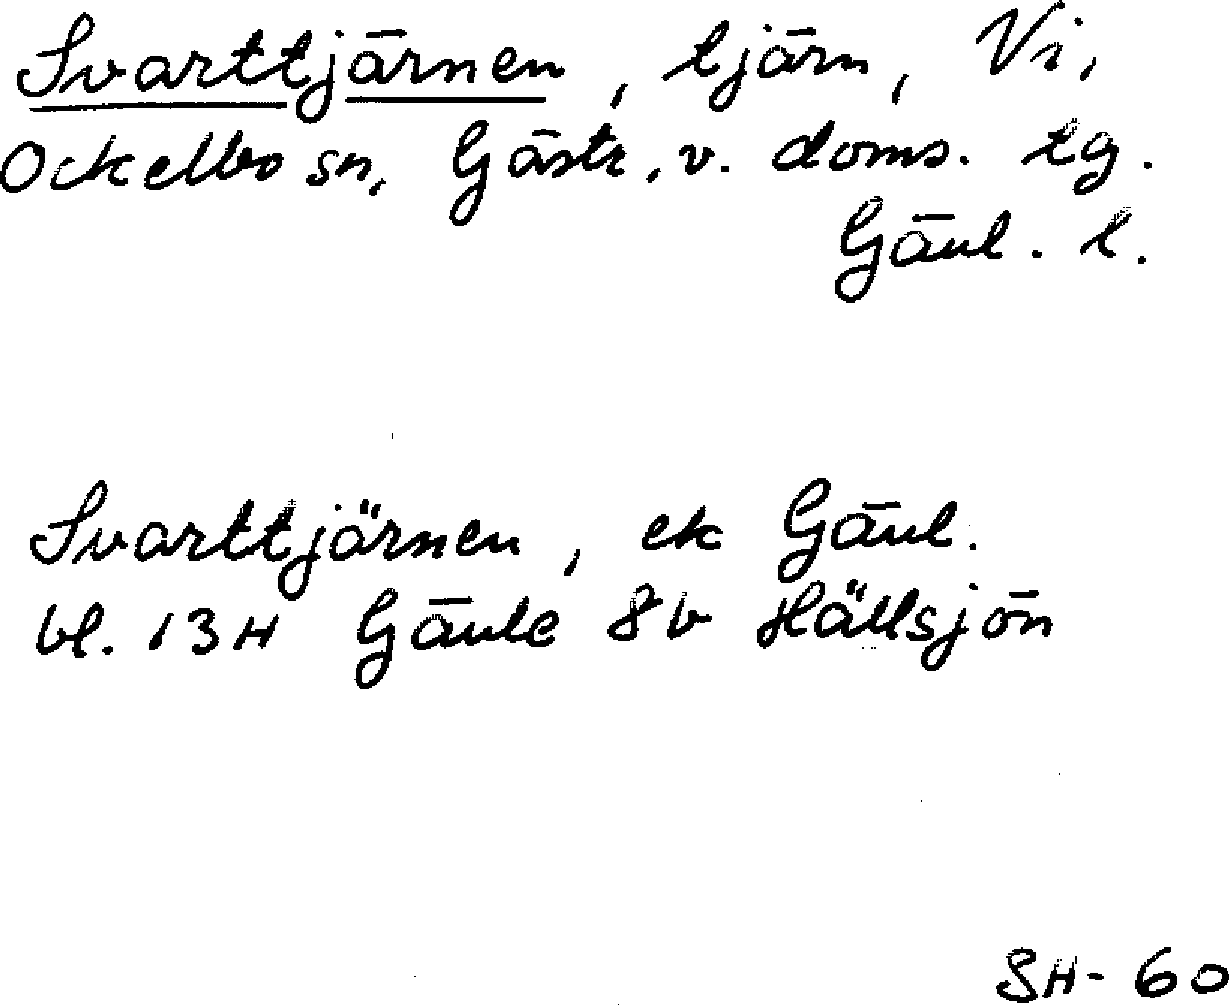 Svarttjärnen, tjärn, Vi,
Ockelbo sn, Gästr, v. doms. tg.
Gävl. l.
Svarttjärnen, ek Gävl.
bl. 13H Gävle 8b Hällsjön
SH-60